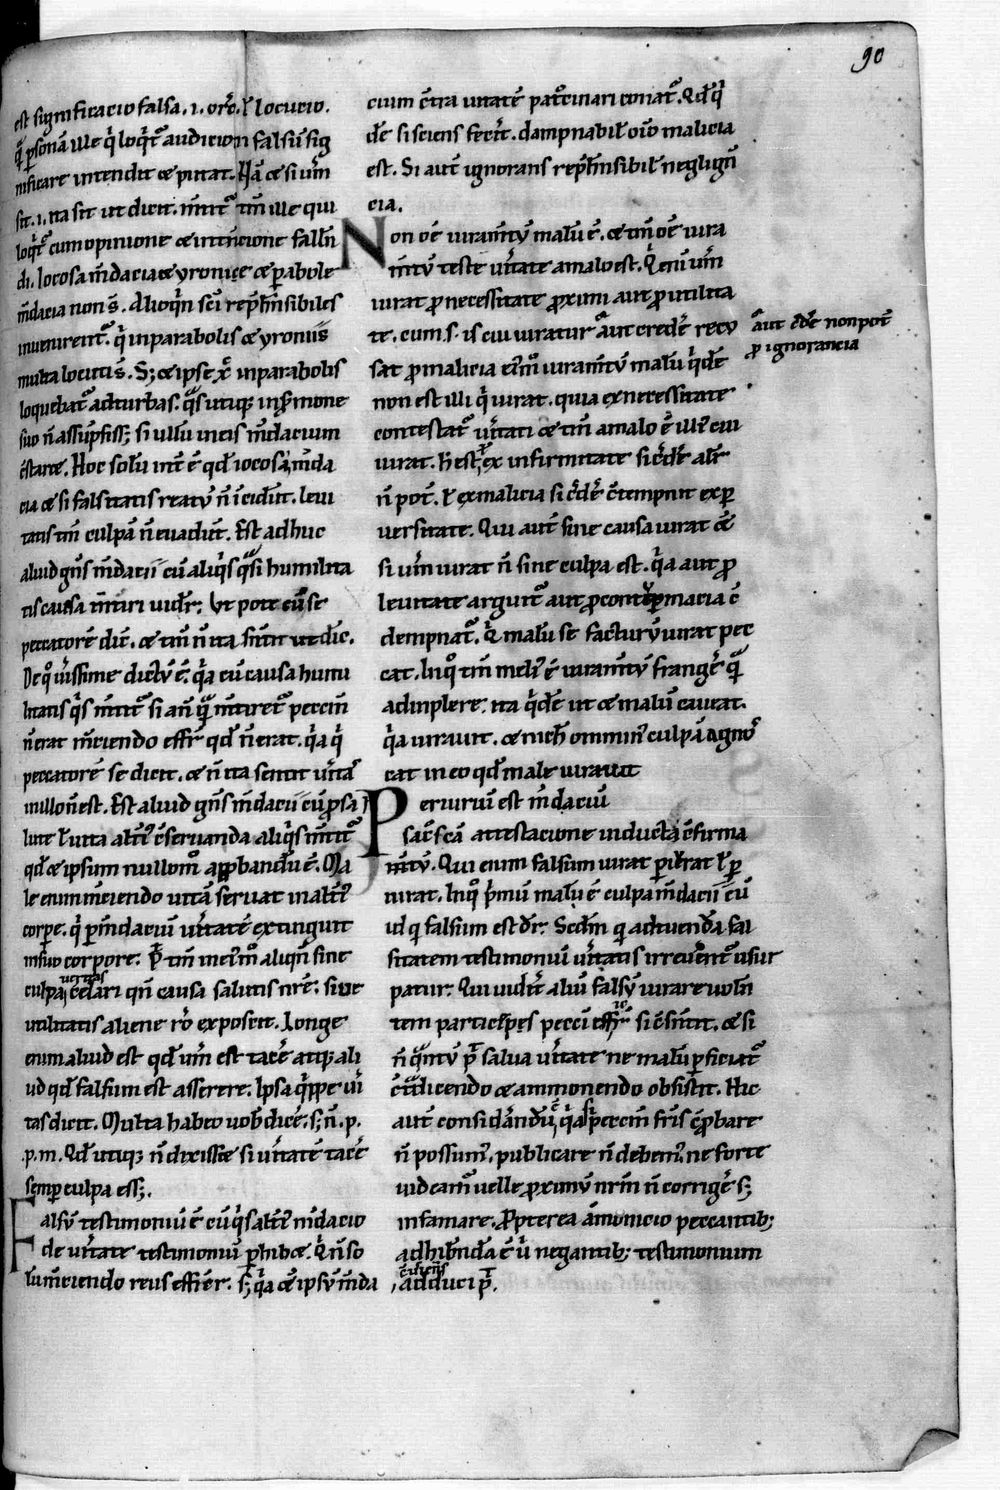 90
est significacio falsa .i. orō. ł locucio.
q̄ psonā ille q̇ loqt̄ audicion falsū sig
nificare intendit ⁊ putat. Nā ⁊ si uer̄m
sit .i. ita sit ut dicit. mtit᷑ tm̄ ille qui
loqt̄ cum opinione ⁊ intencione fallen
di. Iocosa m̄dacia ⁊ yronice ⁊ parabole
m̄dacia non s̄. Alioqn̄ seu rep̄hēsibiles
inuenirent᷑. q̇ in parabolis ⁊ yroniis
multa locuti s̄. S; ⁊ ipse xp̄c in parabolis
loquebat᷑ ad turbas. q̄s utiq; in sermone
suo n̄ assūpsiss; si ullū in eis m̄dacium
cstaret. Hoc solū int̄ ē qd̄ iocosa m̄da
cia ⁊ si falsitatis reatū n̄ īcidūt. leui
tatis tm̄ culpā n̄ euadūt. Est adhuc
aliud gn̄s m̄dacii cū aliq̇s q̄si humilita
tis causa m̄tiri uidr̄. Ut pote cū se
peccatorē dic̄. ⁊ tm̄ n̄ ita sn̄tit ut dic̄.
De q̊ uissime dictū ē. q̇a cū causa humi
litatis q̇s mtit᷑ si an̄ q̄ m̄tiret᷑ peccm̄
n̄ erat m̄ciendo effr̄ qd̄ n̄ erat. q̇a q̇
peccatorē se dicit. ⁊ n̄ ita sentit uitas
in illo n̄ est. Est aliud gn̄s m̄dacii cū p̱ sa
lute ł uita alti᷒ cseruanda aliq̇s mtit᷑
qd̄ ⁊ ipsum nullom̊ app̱bandū ē. Ma
le enim m̄ciendo uitā seruat in alti᷒
corpe. q̇ p m̄daciū uitatē extinguit
in suo corpore. P̄t tm̄ inti᷒m̊ aliqn̄ sine
culpa ueritas celari qn̄ causa salutis nr̄e. siue
utilitatis aliene rō exposcit. Longe
enim aliud est qd̄ uer̄m est tacē atq; ali
ud qd̄ falsum est asserere. Ipsa q̇ppe ui
tas dicit. Multa habeo uob̄ dicē. s; n̄ .p.
.p.m. Qd̄ utiq; n̄ dixisset si uitatē tacē
semp culpa ess;.
Falsū testimoniū ē cū q̇s alti᷒ m̄dacio
de uitate testimoniū phibet. Q̇ n̄ so
lum m̄ciendo reus effic̄r. s; q̇a ⁊ ipsū m̄da
cium cͨtra uitatē pat̊cinari conat᷑. Qd̄ q̇
dē si sciens fecit. dampnabił oīo malicia
est. Si aut̄ ignorans rep̄hēsibił negligen
cia.
Non om̄e iuram̄tū malū ē. ⁊ tm̄ om̄e iura
m̄tū teste uitate a malo est. Q̇ enī uer̄m
iurat p̱ necessitate p̱ximi aut p̱ utilita
te. cum .s. is cui iuratur aut credē recu
aut c̄dē non pot̄
p̱ ignorancia
sat p̱ malicia eti᷒m iuram̄tū malū q̇dē
non est illi q̇ iurat. quia ex necessitate
contestat᷑ uitati ⁊ tm̄ a malo ē illi᷒ cui
iurat. h̄ est ex infirmitate si c̄dē alit̄
n̄ pot̄. ł ex malicia si c̄dē ctempnit ex p
uersitate. Qui aut̄ sine causa iurat ⁊
si uer̄m iurat n̄ sine culpa est. q̇a aut p̱
leuitate arguit᷑ aut p̱ contumacia c
dempnat᷑. Q̇ malū se facturū iurat pec
cat. In q̊ tm̄ meli᷒ ē iuram̄tū frangē q̄
adinplere. ita q̇dē ut ⁊ malū caueat.
q̇a iurauit. ⁊ nich̄ omin᷒ culpā agnos
cat in eo qd̄ male iurauit
Periuriū est m̄daciū
sac̄scā attestacione inductā cfirma
m̄tū. Qui enim falsum iurat peierat ł p
iurat. In q̊ ṗmū malū ē culpa m̄dacii cū
id q̇ falsum est dr̄. Scd̄m q̇ ad tuendā fal
sitatem testimoniū uitatis irreuerent᷑ usur
patur. Qui uidet aliū falsū iurare uolen
tem particeps pecci effic̄r si csn̄tit. ⁊ si
n̄ q̄ntū p̄t salua uitate ne malū pficiat᷑
ctᵃdicendo ⁊ ammonendo obsistit. Hic
aut̄ considandū ē q̇a si peccm̄ fr̄is cp̱bare
n̄ possum᷒. publicare n̄ debem᷒. ne forte
uideam᷑ uelle p̱ximū nr̄m n̄ corrigē s;
infamare. P̱pterea āmonicio peccantib;
adhibn̄da ē ū negantib; testimonium
cuincens adduci p̄t.